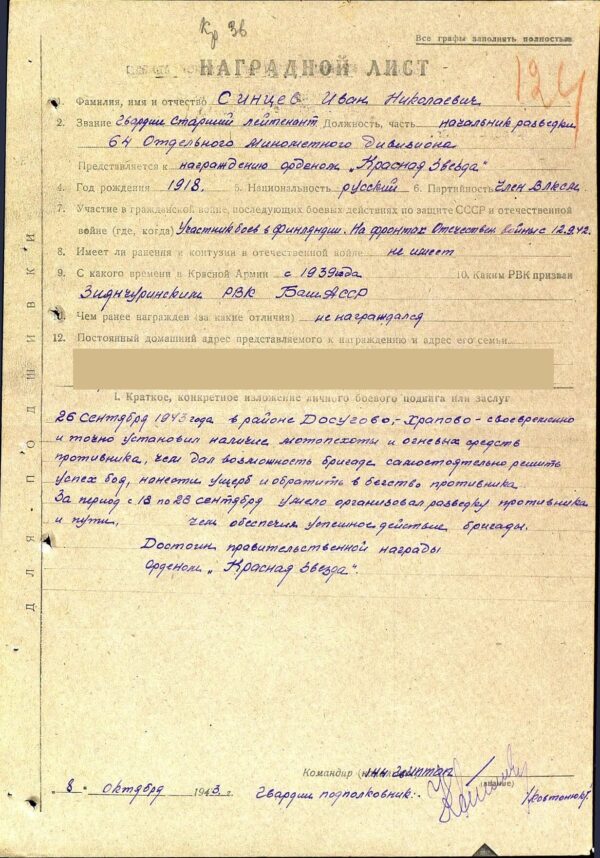 Кр 36
Все графы заполнять полностью
НАГРАДНОЙ ЛИСТ
124
1. Фамилия, имя и отчество Синцев Иван Николаевич
2. Звание Гвардии Старший лейтенант Должность, часть начальник разведки
64 Отдельного Минометного Дивизиона
Представляется к награждению орденом „Красная Звезда"
4. Год рождения 1918. 5. Национальность русский 6. Партийность Член ВЛКСМ
7. Участие в гражданской войне, последующих боевых действиях по защите СССР и отечественной
войне (где, когда) Участник боев в Финляндии. На фронтах Отечествен войны с 12.9.42.
8. Имеет ли ранения и контузии в отечественной войне не имеет
9. С какого времени в Красной Армии с 1939 года 10. Каким РВК призван
Зианчуринским РВК БашАССР
Чем ранее награжден (за какие отличия) не награждался
12. Постоянный домашний адрес представляемого к награждению и адрес его семьи
I. Краткое, конкретное изложение личного боевого подвига или заслуг
26 сентября 1943 года в районе Досугово,-Храпово-своевременно
и точно установил наличие мотопехоты и огневых средств
противника, чем дал возможность бригаде самостоятельно решить
успех боя, нанести ущерб и обратить в бегство противника.
За период с 18 по 28 сентября умело организовал разведку противника
и пути, чем обеспечил успешное действие бригады.
Достоин правительственной награды
Орденом „Красная Звезда".
ДЛЯ ПОДШИВКИ
Командир
(звание)
„8" Октября 1943 г. Гвардии подполковник:-